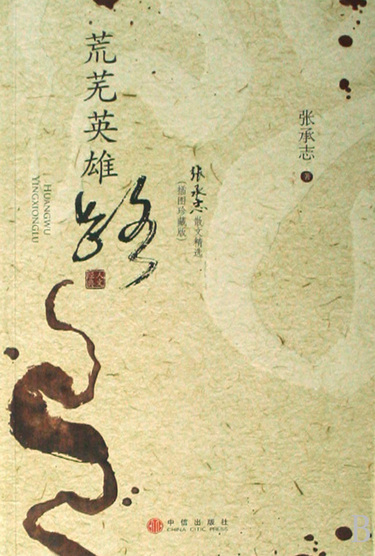 荒芜英雄路
HUANGWU
YINGXIONGLU
张承志 著
张承志散文精选
(插图珍藏版)
中信出版社
CHINA CITIC PRESS